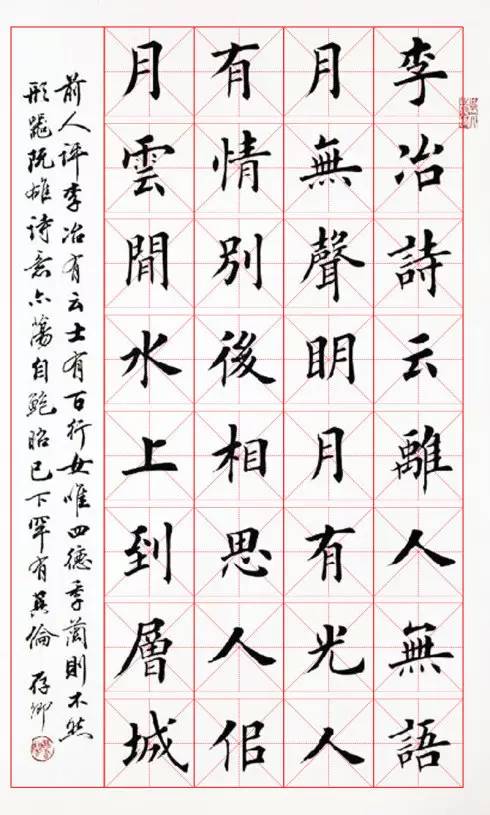 李冶詩云離人無語
月無聲明月有光人
有情別後相思人佀
月雲間水上到層城
前人評李冶有云士有百行女唯四德季蘭則不然
形器既雄詩意亦蕩自鮑昭已下罕有其倫 存卿